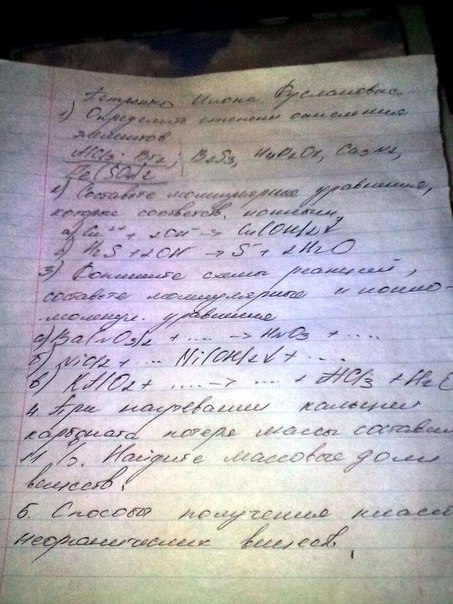 Петренко Илона Руслановна.
1) Определить степени окисления
элементов
AlCl3; Br2; B2S3, Ca3N2,
Fe(SO4)2
2) Составьте молекулярные уравнения,
которые соответств. ионным,
а) Cu²⁺ + 2OH⁻ → Cu(OH)2↓
б) H2S + 2OH⁻ → S⁻ + 2H2O
3) схемы реакций,
составьте молекулярные и ионно-
молекул. уравнения
а) Ba(NO3)2 + .... → HNO3 + ....
б) NiCl2 + .... Ni(OH)2↓ + ....
в) KAlO2 + .... → .... + AlCl3 + H2
4. При кальция
карбоната потеря массы составил
11 Найдите массовые доли
веществ.
5. Способы получения класс
неорганических веществ.